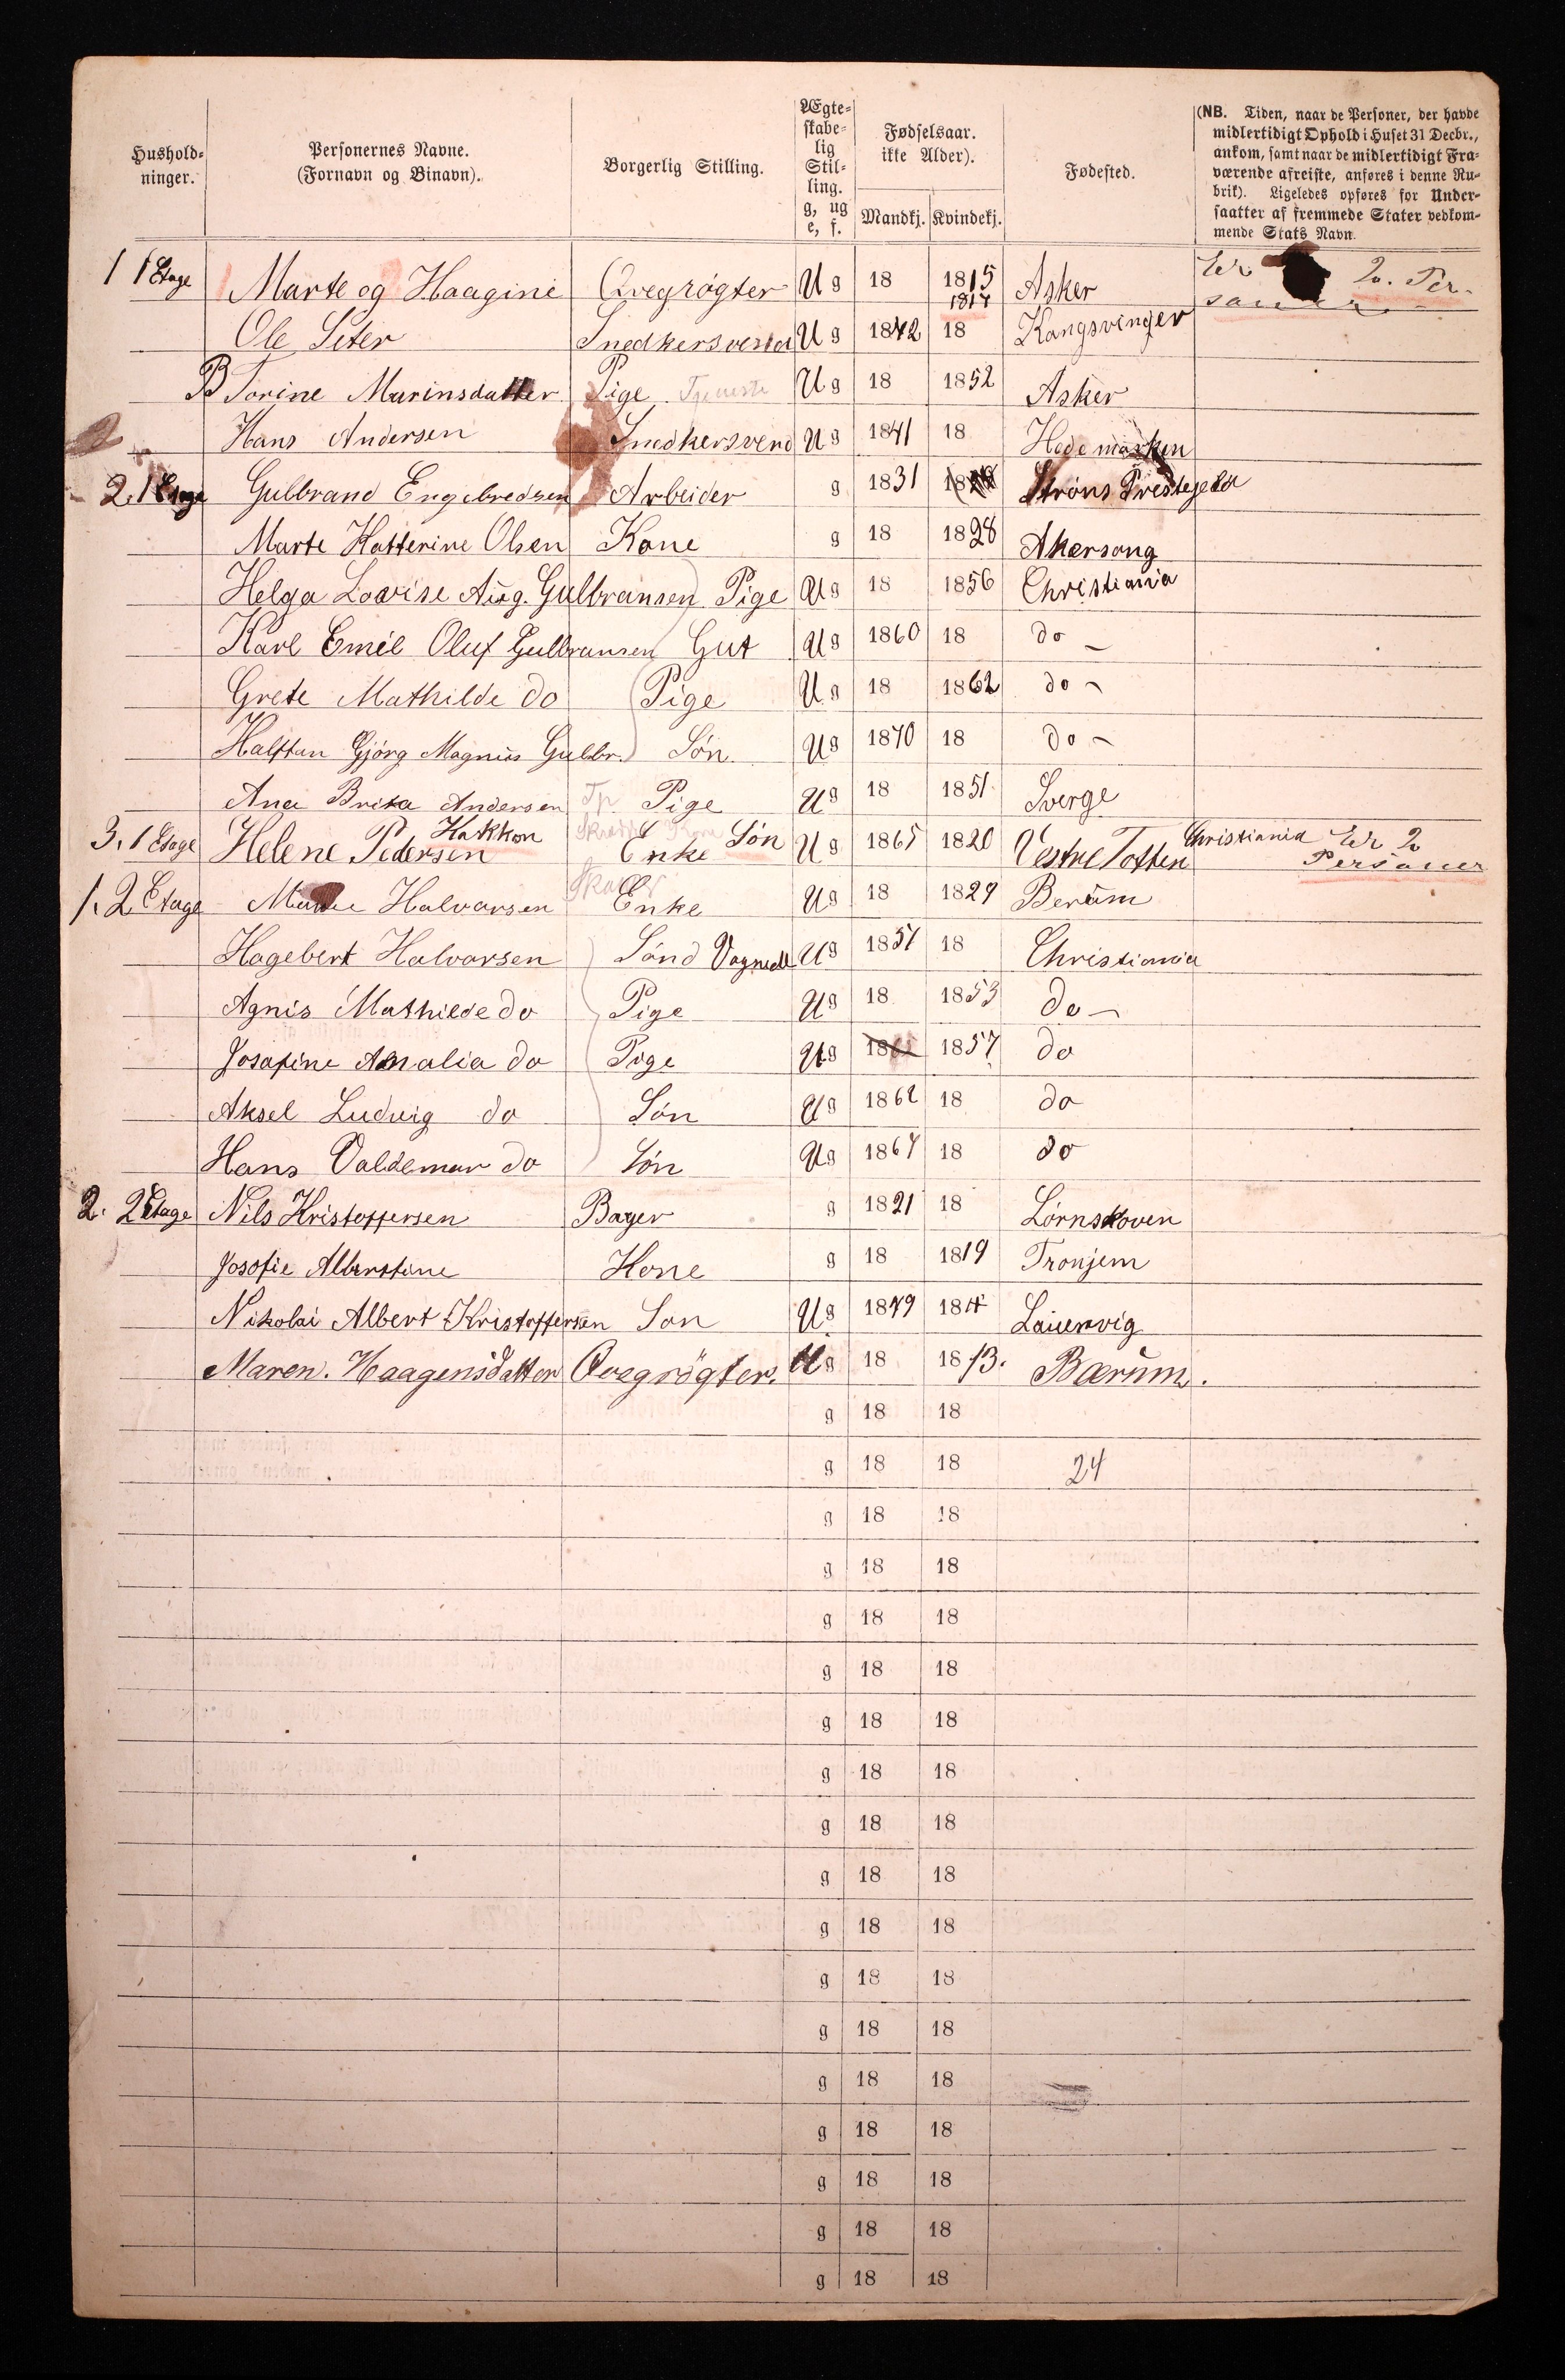 Hushold-
ninger.
Personernes Navne.
(Fornavn og Binavn).
Borgerlig Stilling.
Ægte-
skabe-
lig
Stil-
ling.
g, ug
e, f.
Fødselsaar.
ikke Alder).
Mandkj. Kvindekj.
Fødested.
(NB. Tiden, naar de Personer, der havde
midlertidigt Ophold i Huset 31 Decbr.,
ankom, samt naar de midlertidigt Fra-
værende afreiste, anføres i denne Ru-
brik). Ligeledes opføres for Under-
saatter af fremmede Stater vedkom-
mende Stats Navn.
1 1 Etage Marte og Haagine Qvegrögter Ug 18 1815 1817 Asker Er 2. Per-
soner
Ole Seter Snedkersvend Ug 1842 18 Kongsvinger
B Torine Marinsdatter Pige Tjeneste Ug 18 1852 Asker
Hans Andersen Snedkersvend Ug 1841 18 Hedemarken
2. 1 Etage Gulbrand Engebredsen Arbeider g 1831 18 Ströns Prestegeld
Marte Katterine Olsen Kone g 18 1828 Akersong
Helga Lovise Aug. Gulbransen Pige Ug 18 1856 Christiania
Karl Emil Oluf Gulbransen Gut Ug 1860 18 do
Grete Mathilde do Pige Ug 18 1862 do
Halftan Gjörg Magnus Gulbr. Sön Ug 1870 18 do
Ana Brita Andersen Tp Pige Ug 18 1851 Sverge
3. 1 Etage Helene Pedersen Hakkon Enke Sön Ug 1865 1820 Vestre Totten Christiania Er 2
Personer
1. 2 Etage Halvorsen Enke Ug 18 1829 Berüm
Hagebert Halvorsen Sönd Ug 1851 18 Christiania
Agnis Mathilde do Pige Ug 18 1853 do
Josafine Amalia do Pige Ug 18 1857 do
Aksel Ludvig do Sön Ug 1862 18 do
Hans Valdemar do Sön Ug 1867 18 do
2. 2 Etage Nils Kristoffersen Bager g 1821 18 Lörnskoven
Josofie Alberstine Kone g 18 1819 Tronjem
Nikolai Albert Kristoffersen Son Ug 1849 18 Lauervig
Maren. Haagensdatter Qvegrögter. Ug 18 1813. Bærum.
g 18 18
g 18 18 24
g 18 18
g 18 18
g 18 18
g 18 18
g 18 18
g 18 18
g 18 18
g 18 18
g 18 18
g 18 18
g 18 18
g 18 18
g 18 18
g 18 18
g 18 18
g 18 18